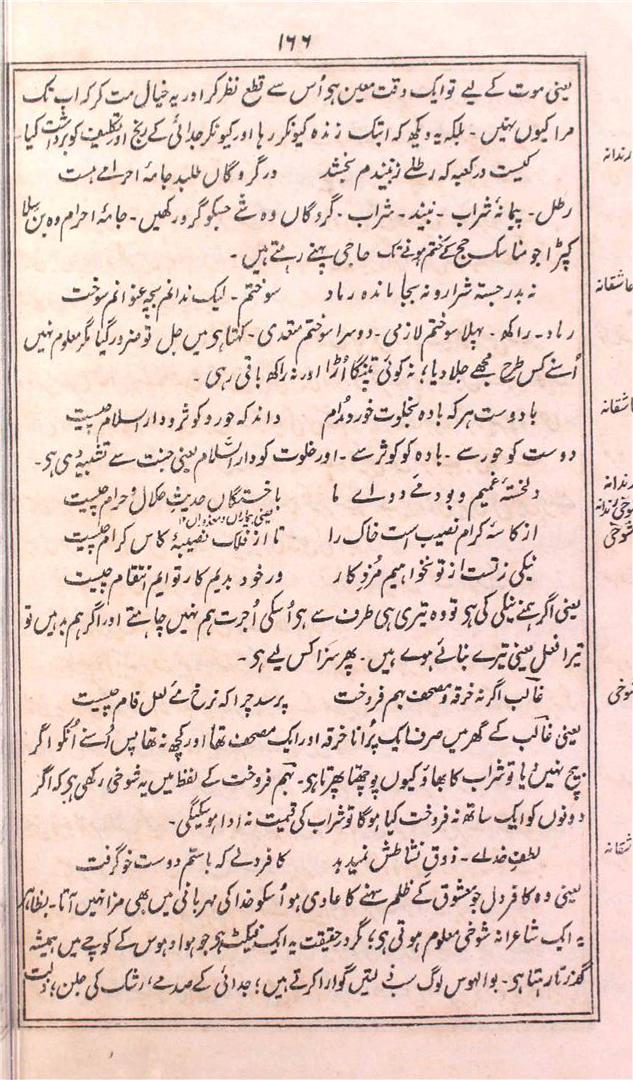 ۱۶۶
یعنی موت کے لیے تو ایک وقت معین ہی اُس سے قطع نظر کر اور یہ خیال مت کر کہ اب تک
مرا کیوں نہیں ۔ بلکہ یہ دیکھ کہ ابتک زندہ کیونکر رہا اور کیونکر جدائی کے رنج اور تکلیف کو برداشت کیا
رندانہ
کیست در کعبہ کہ رطلے ز نبیذم بخشد در گروگاں طلبد جامۂ احرامے ہست
رطل ۔ پیمانۂ شراب ۔ نبیذ ۔ شراب ۔ گروگاں وہ شے جسکو گرو رکھیں ۔ جامۂ احرام وہ بن سلا
کپڑا جو مناسک حج کے ختم ہونے تک حاجی پہنے رہتے ہیں ۔
عاشقانہ
نہ بدر جستہ شرار و نہ بجا ماندہ رماد سوختم ۔ لیک ندانم بچہ عنوانم سوخت
رماد ۔ راکھ ۔ پہلا سوختم لازمی ۔ دوسرا سوختم متعدی ۔ کہتا ہی میں جل تو ضرور گیا مگر معلوم نہیں
اُسنے کس طرح مجھے جلا دیا ؛ نہ کوئی پتنگا اُڑا اور نہ راکھ باقی رہی ۔
عاشقانہ
با دوست ہر کہ بادہ بخلوت خورد مدام داند کہ حور و کوثر و دار السلام چیست
دوست کو حور سے ۔ بادہ کو کوثر سے ۔ اور خلوت کو دار السّلام یعنی جنت سے تشبیہ دی ہی ۔
رندانہ
دلخستۂ غمیم و بود مے دواے ما با خستگاں حدیث حلال و حرام چیست
یعنی بیماراں و معذوراں ۱۲
شوخی رندانہ
از کاسۂ کرام نصیب است خاک را تا از فلک نصیبۂ کاس کرام چیست
شوخی
نیکی ز تست از تو نخواہیم مُزدِ کار ور خود بدیم کار تو ایم انتقام چیست
یعنی اگر ہمنے نیکی کی ہی تو وہ تیری ہی طرف سے ہی اُسکی اُجرت ہم نہیں چاہتے اور اگر ہم بد ہیں تو
تیرا فعل یعنی تیرے بنائے ہوے ہیں ۔ پھر سزا کس لیے ہی ۔
شوخی
غالب اگر نہ خرقہ و مصحف بہم فروخت پرسد چرا کہ نرخ مے لعل فام چیست
یعنی غالب کے گھر میں صرف ایک پُرانا خرقہ اور ایک مصحف تھا اور کچھ نہ تھا پس اُسنے اُنکو اگر
بیچ نہیں دیا تو شراب کا بھاؤ کیوں پوچھتا پھرتا ہی ۔ بہم فروخت کے لفظ میں یہ شوخی رکھی ہی کہ اگر
دونوں کو ایک ساتھ نہ فروخت کیا ہوگا تو شراب کی قیمت نہ ادا ہو سکیگی ۔
عاشقانہ
لطفِ خداے ۔ ذوقِ نشاطش نمیدہد کافر دلے کہ با ستم دوست خو گرفت
یعنی وہ کافر دل جو معشوق کے ظلم سہنے کا عادی ہو اُسکو خدا کی مہربانی میں بھی مزا نہیں آتا ۔ بظاہر
یہ ایک شاعرانہ شوخی معلوم ہوتی ہی ؛ مگر در حقیقت یہ ایک فیکٹ ہی جو ہوا و ہوس کے کوچے میں ہمیشہ
گذرتا رہتا ہی ۔ بو الہوس لوگ سب ذلتیں گوارا کرتے ہیں ؛ جدائی کے صدمے ، رشک کی جلن ؛ ذلت